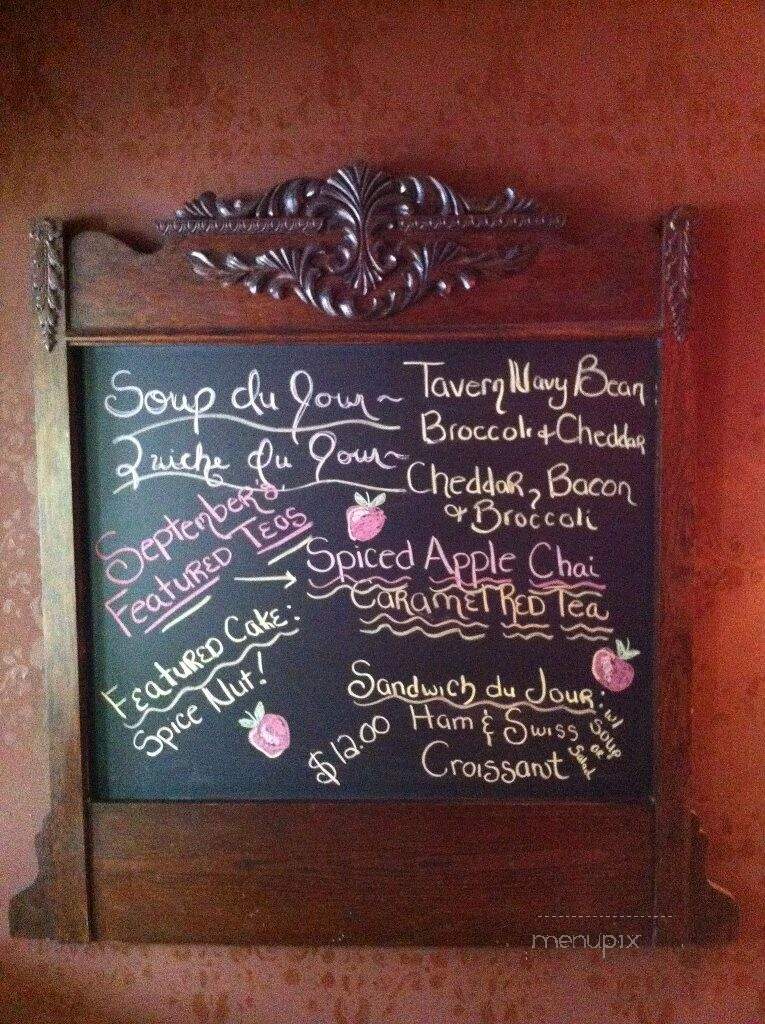 Soup du Jour~ Tavern Navy Bean
Broccoli & Cheddar
Quiche du Jour~ Cheddar, Bacon
& Broccoli
September's
Featured Teas → Spiced Apple Chai
Caramel Red Tea
Featured Cake:
Spice Nut!
Sandwich du Jour:
Ham & Swiss
Croissant
w/
Soup
or
Salad
$12.00
menupix